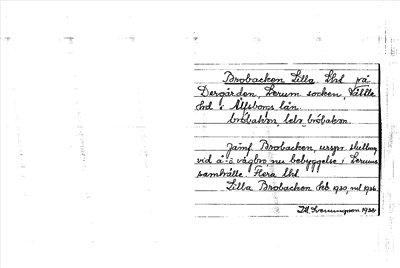 Brobacken Lilla Lht på
Dergården, Lerum socken, Vättle
hd i Älfsborgs län.
bróbakən, lelə bróbakən.
Jämf Brobacken, urspr.
vid å- o vägbro nu bebyggelse i Lerums
samhälle. Flera Lht
Lilla Brobacken feb. 1920,
1926